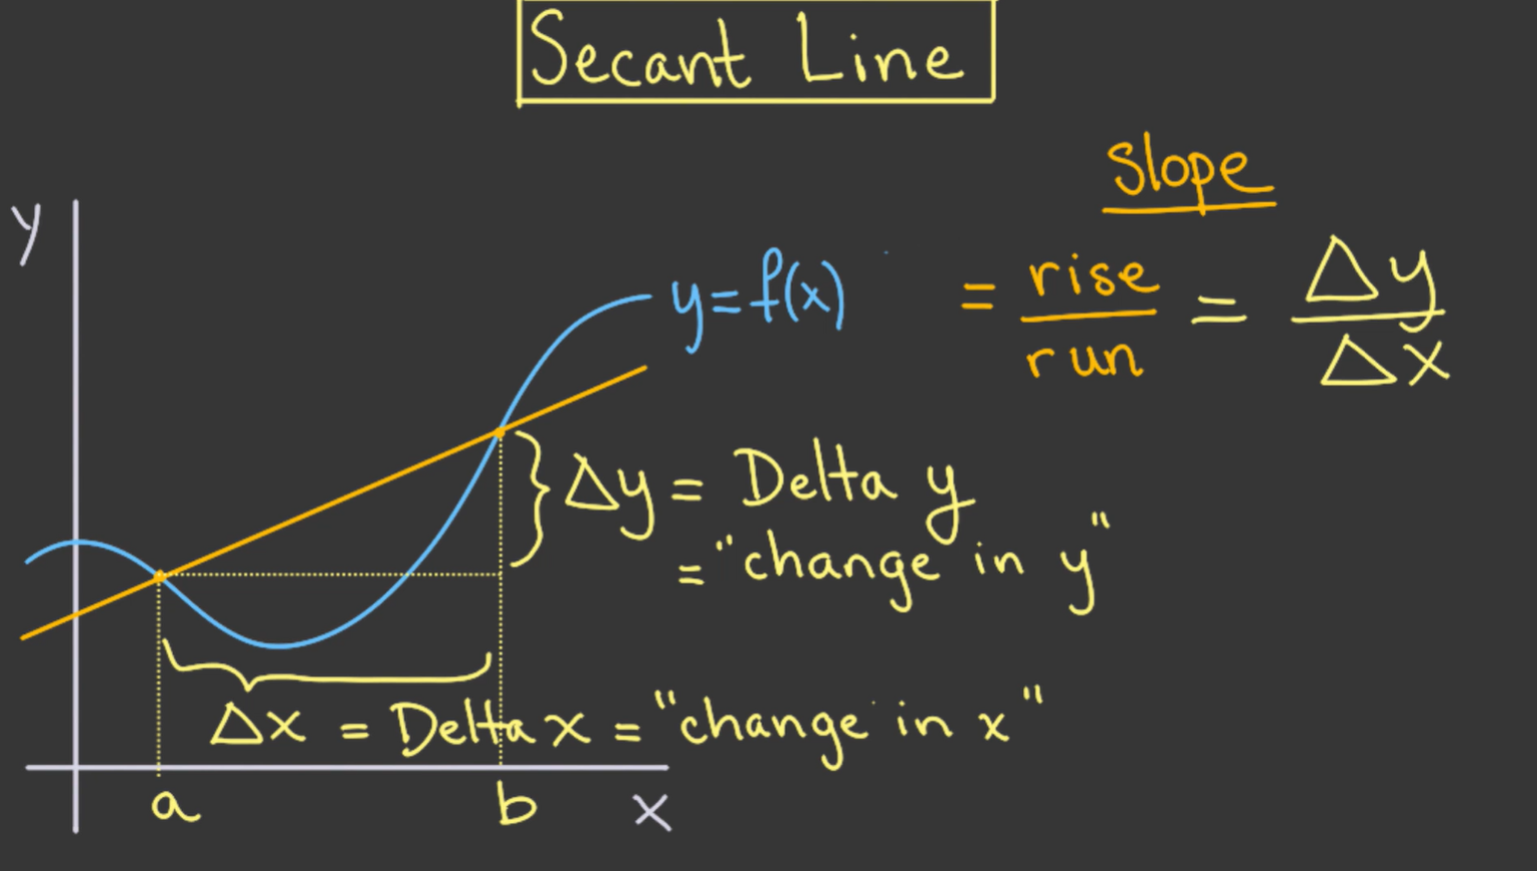 Secant Line
Slope
= rise/run = Δy/Δx
y
y=f(x)
Δy = Delta y
= "change in y"
Δx = Delta x = "change in x"
a
b
x